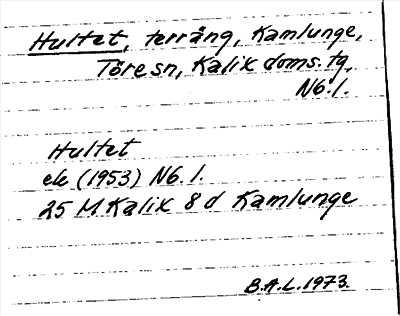 Hultet, terräng, Kamlunge,
Töre sn, Kalix doms. tg,
N6.1.
Hultet
ek (1953) N6.1.
25 M Kalix 8 d Kamlunge
B.A.L. 1973.